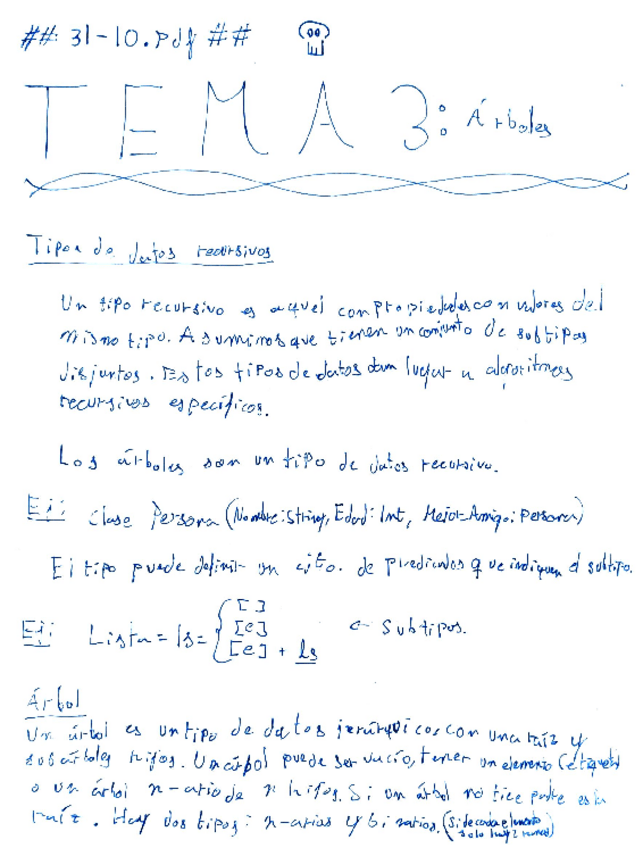 ## 31-10.pdf ##
TEMA 3: Árboles
Tipos de datos recursivos
Un tipo recursivo es aquel con propiedades con valores del
mismo tipo. Asumimos que tienen un conjunto de subtipos
disjuntos. Estos tipos de datos dan lugar a algoritmos
recursivos específicos.
Los árboles son un tipo de datos recursivo.
Ej: Clase Persona (Nombre: String, Edad: Int, Mejor-Amigo: Persona)
El tipo puede definir un cjto. de predicados que indiquen el subtipo.
Ej: Lista = ls = { [ ]
[e] ← Subtipos.
[e] + ls
Árbol
Un árbol es un tipo de datos jerárquicos con una raíz y
subárboles hijos. Un árbol puede ser vacío, tener un elemento (etiqueta)
o un árbol n-ario de n hijos. Si un árbol no padre es la
raíz. Hay dos tipos: n-arios y binarios. (Si de cada elemento
solo hay 2 ramas)